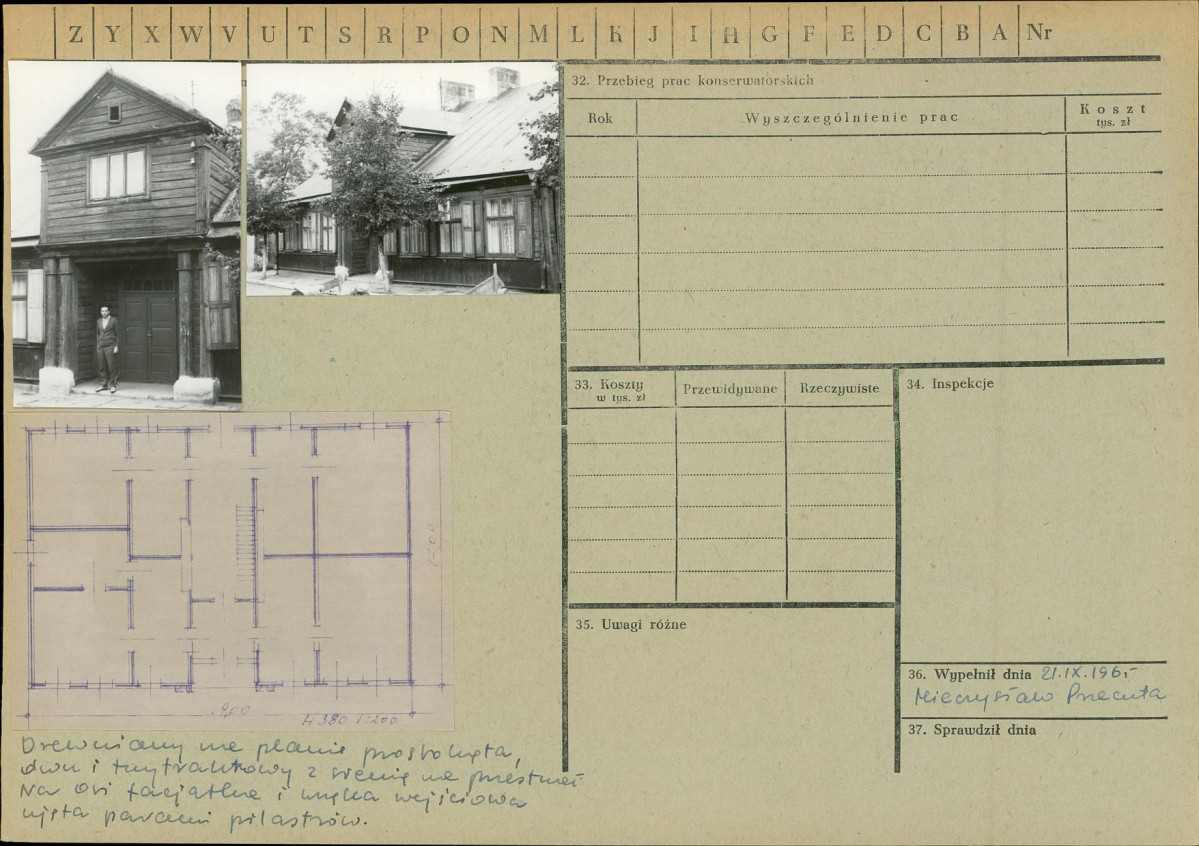 Z Y X W V U T S R P O N M L K J I H G F E D C B A Nr
32. Przebieg prac konserwatorskich
Rok
Wyszczególnienie prac
Koszt
tys. zł
33. Koszty
w tys. zł
Przewidywane
Rzeczywiste
34. Inspekcje
35. Uwagi różne
36. Wypełnił dnia 21.IX.1965
Mieczysław Przecuta
37. Sprawdził dnia
1:200
Drewniany na planie prostokąta,
dwu i trzytraktowy z sienią na przestrzał
Na osi facjatka i wnęka wejściowa
ujęta parami pilastrów.